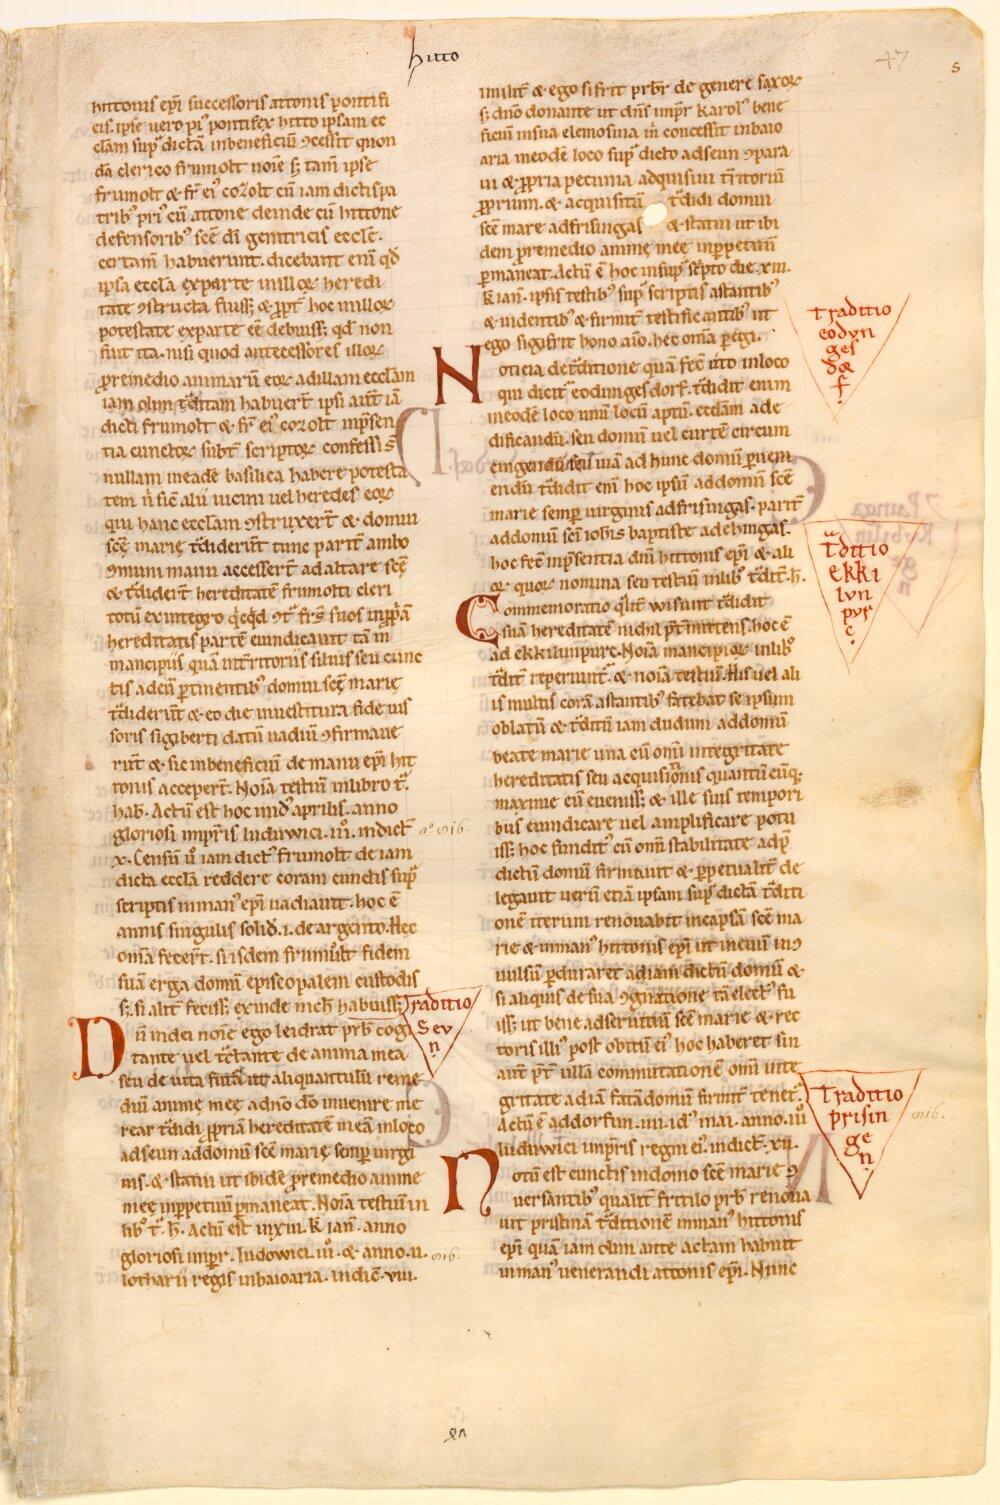 hitto
47
s
hittonis epi successoris attonis pontifi
cis. ipse vero pi' pontifex hitto ipsam ec
clam sup dictā inbeneficiū ꝯcessit quon
dā clerico frumolt noie sꝫ tam̄ ipse
frumolt & fr̄ ei' cozolt cū iam dictis pa
trib' pri' cū attone deinde cū hittone
defensorib' scē dī genitricis eccle.
certam̄ habuerunt. dicebant enī qđ
ipsa eccla exparte illoꝝ heredi
tate ꝯstructa fuissꝫ & ꝓpt̄ hoc illoꝝ
potestate exparte eē debuissꝫ qđ non
fuit ita. nisi quod antecessores illoꝝ
ꝓremedio animarū eoꝝ adillam ecclam
iam olim t̄ditam habuer̄t ipsi aut̄ iā
dicti frumolt & fr̄ ei' cozolt inp̄sen
tia cunctoꝝ subt̄ scriptoꝝ confessi s̄
nullam ineadē basilica habere potesta
tem n̄ sic alii uicini uel heredes eoꝝ
qui hanc ecclam ꝯstruxer̄t & domui
scē marię t̄diderūt tunc parit̄ ambo
ꝯmuni manu accesser̄t ad altare scē
& t̄dider̄t hereditatē frumolti cleri
totū ex integro q̇cqd ꝯt̄ frs̄ suos inꝓpā
hereditatis partē euindicauit tā in
mancipiis quā interritoriis siluis seu cunc
tis adeū ꝑtinentib' domui scē marię
t̄diderūt & eo die inuestitura fideiuis
soris sigiberti datū uadiū ꝯfirmaue
rūt & sic inbeneficiū de manu epi hit
tonis acceper̄t. Noiā testiū inlibro t̄.
hab. Actū est hoc in id' aprilis. anno
gloriosi imp̄ris luduwici. iii. indict̄
aº 816.
x. Censū ū iam dict' frumolt de iam
dicta eccla reddere coram cunctis sup
scriptis in man' epi uadiauit. hoc ē
annis singulis solid. i. de argento. Hęc
omā fecer̄t. si isdem frumolt fidem
suā erga domū episcopalem custodis
sꝫ. si alit̄ fecissꝫ exinde nich̄ habuissꝫ
Traditio
Sev
n.
Dū in dei noie ego leidrat prb cogi
tante uel t̄ctante de anima mea
seu de uita futura ut aliquantulū reme
diū animę meę adno dō inuenire me
rear t̄didi ꝓpriā hereditatē meā inloco
adseun addomū scē marię semp̄ uirgi
nis. & statui ut ibidē ꝓremedio animę
meę inꝑpetuū ꝑmaneat. Noiā testiū in
lib' t̄. h̄. Actū est in xiiii. k̄ ian. anno
gloriosi impr. ludowici. iii. & anno. ii.
816.
lotharii regis inbaioaria. indic̄. viii.
& ego sifrit prb̄r de genere saxoꝝ
sꝫ dnō donante ut dn̄s impr̄ karol' bene
ficiū insua elemosina m̄ concessit inbaio
aria ineodē loco sup dicto adseun ꝯpara
ui & ꝓpria pecunia adquisiui tr̄ritoriū
ꝓprium. & acquisitū t̄didi domui
scē marę adfrisingas & statui ut ibi
dem ꝓremedio animę meę inꝑpetuū
ꝑmaneat. Actū ē hoc insup sc̄pto die. xiii.
k̄ ian. ipsis testib' sup scriptis astantib'
& uidentib' & firmit̄ testificantib' ut
ego sigifrit bono aīo. hec omā peregi.
Traditio
eodyn
ges
doꝛ
f.
Noticia det̄ditione quā fec̄ úto inloco
qui dicit̄ eodunges dorf. t̄didit enim
ineodē loco unū locū aptū. ecclam ade
dificandū. seu domū uel curtē circum
cingendū seu uiā ad hunc domū ꝑueni
endū t̄didit enī hoc ipsū addomū scē
marię semp̄ uirginis adfrisingas. parit̄
addomū scī iohis baptistę adehingas.
hoc fec̄ inp̄sentia dn̄i hittonis epi & ali
oꝝ quoꝝ nomina seu testiū inlib' t̄dit̄. h̄.
Traditio
ekki
lvn
pvr
c.
Commemoratio q̄lit̄ wisunt t̄didit
suā hereditatē nichil p̄t̄mittens. hoc ē
ad ekkilunpurc. Noiā mancipioꝝ inlib'
t̄dit̄ reperiunt̄. & noiā testiū. His uel ali
is multis corā astantib' fatebat̄ se ipsum
oblatū & t̄ditū iam dudum addomū
beate marie una cū omi integritate
hereditatis seu acquisitionis quantū cūqꝫ
maxime eū euenissꝫ & ille suis tempori
bus euindicare uel amplificare potu
issꝫ hoc fundit' cū omi stabilitate adp̄
dictū domū firmauit & ꝑpetualit̄ de
legauit uerū etiā ipsam sup dictā t̄diti
onē iterum renouabit incapsā scē ma
rie & in man' hittonis epi ut ineuū inꝯ
uulsū ꝑduraret adiam dictū domū &
si aliquis de sua ꝯgnatione tā elect' fu
issꝫ ut bene adseruitiū scē marie & rec
toris illi' post obitū ei' hoc haberet sin
aut̄ p̄t̄ ullā commutationē omi inte
gritate adiā fatā domū firmit̄ tenet̄.
Actū ē addorfun. iiii. id' mai. anno. iii.
luduwici imp̄ris regni ei'. indict̄. xii.
Traditio
prisin
ge
n.
816.
Notū est cunctis indomo scē marie ꝯ
uersantib' qualit̄ frittilo prb̄ renoua
uit pristinā t̄ditionē inman' hittonis
epi quā iam olim ante actam habuit
inman' uenerandi attonis epi. Nunc